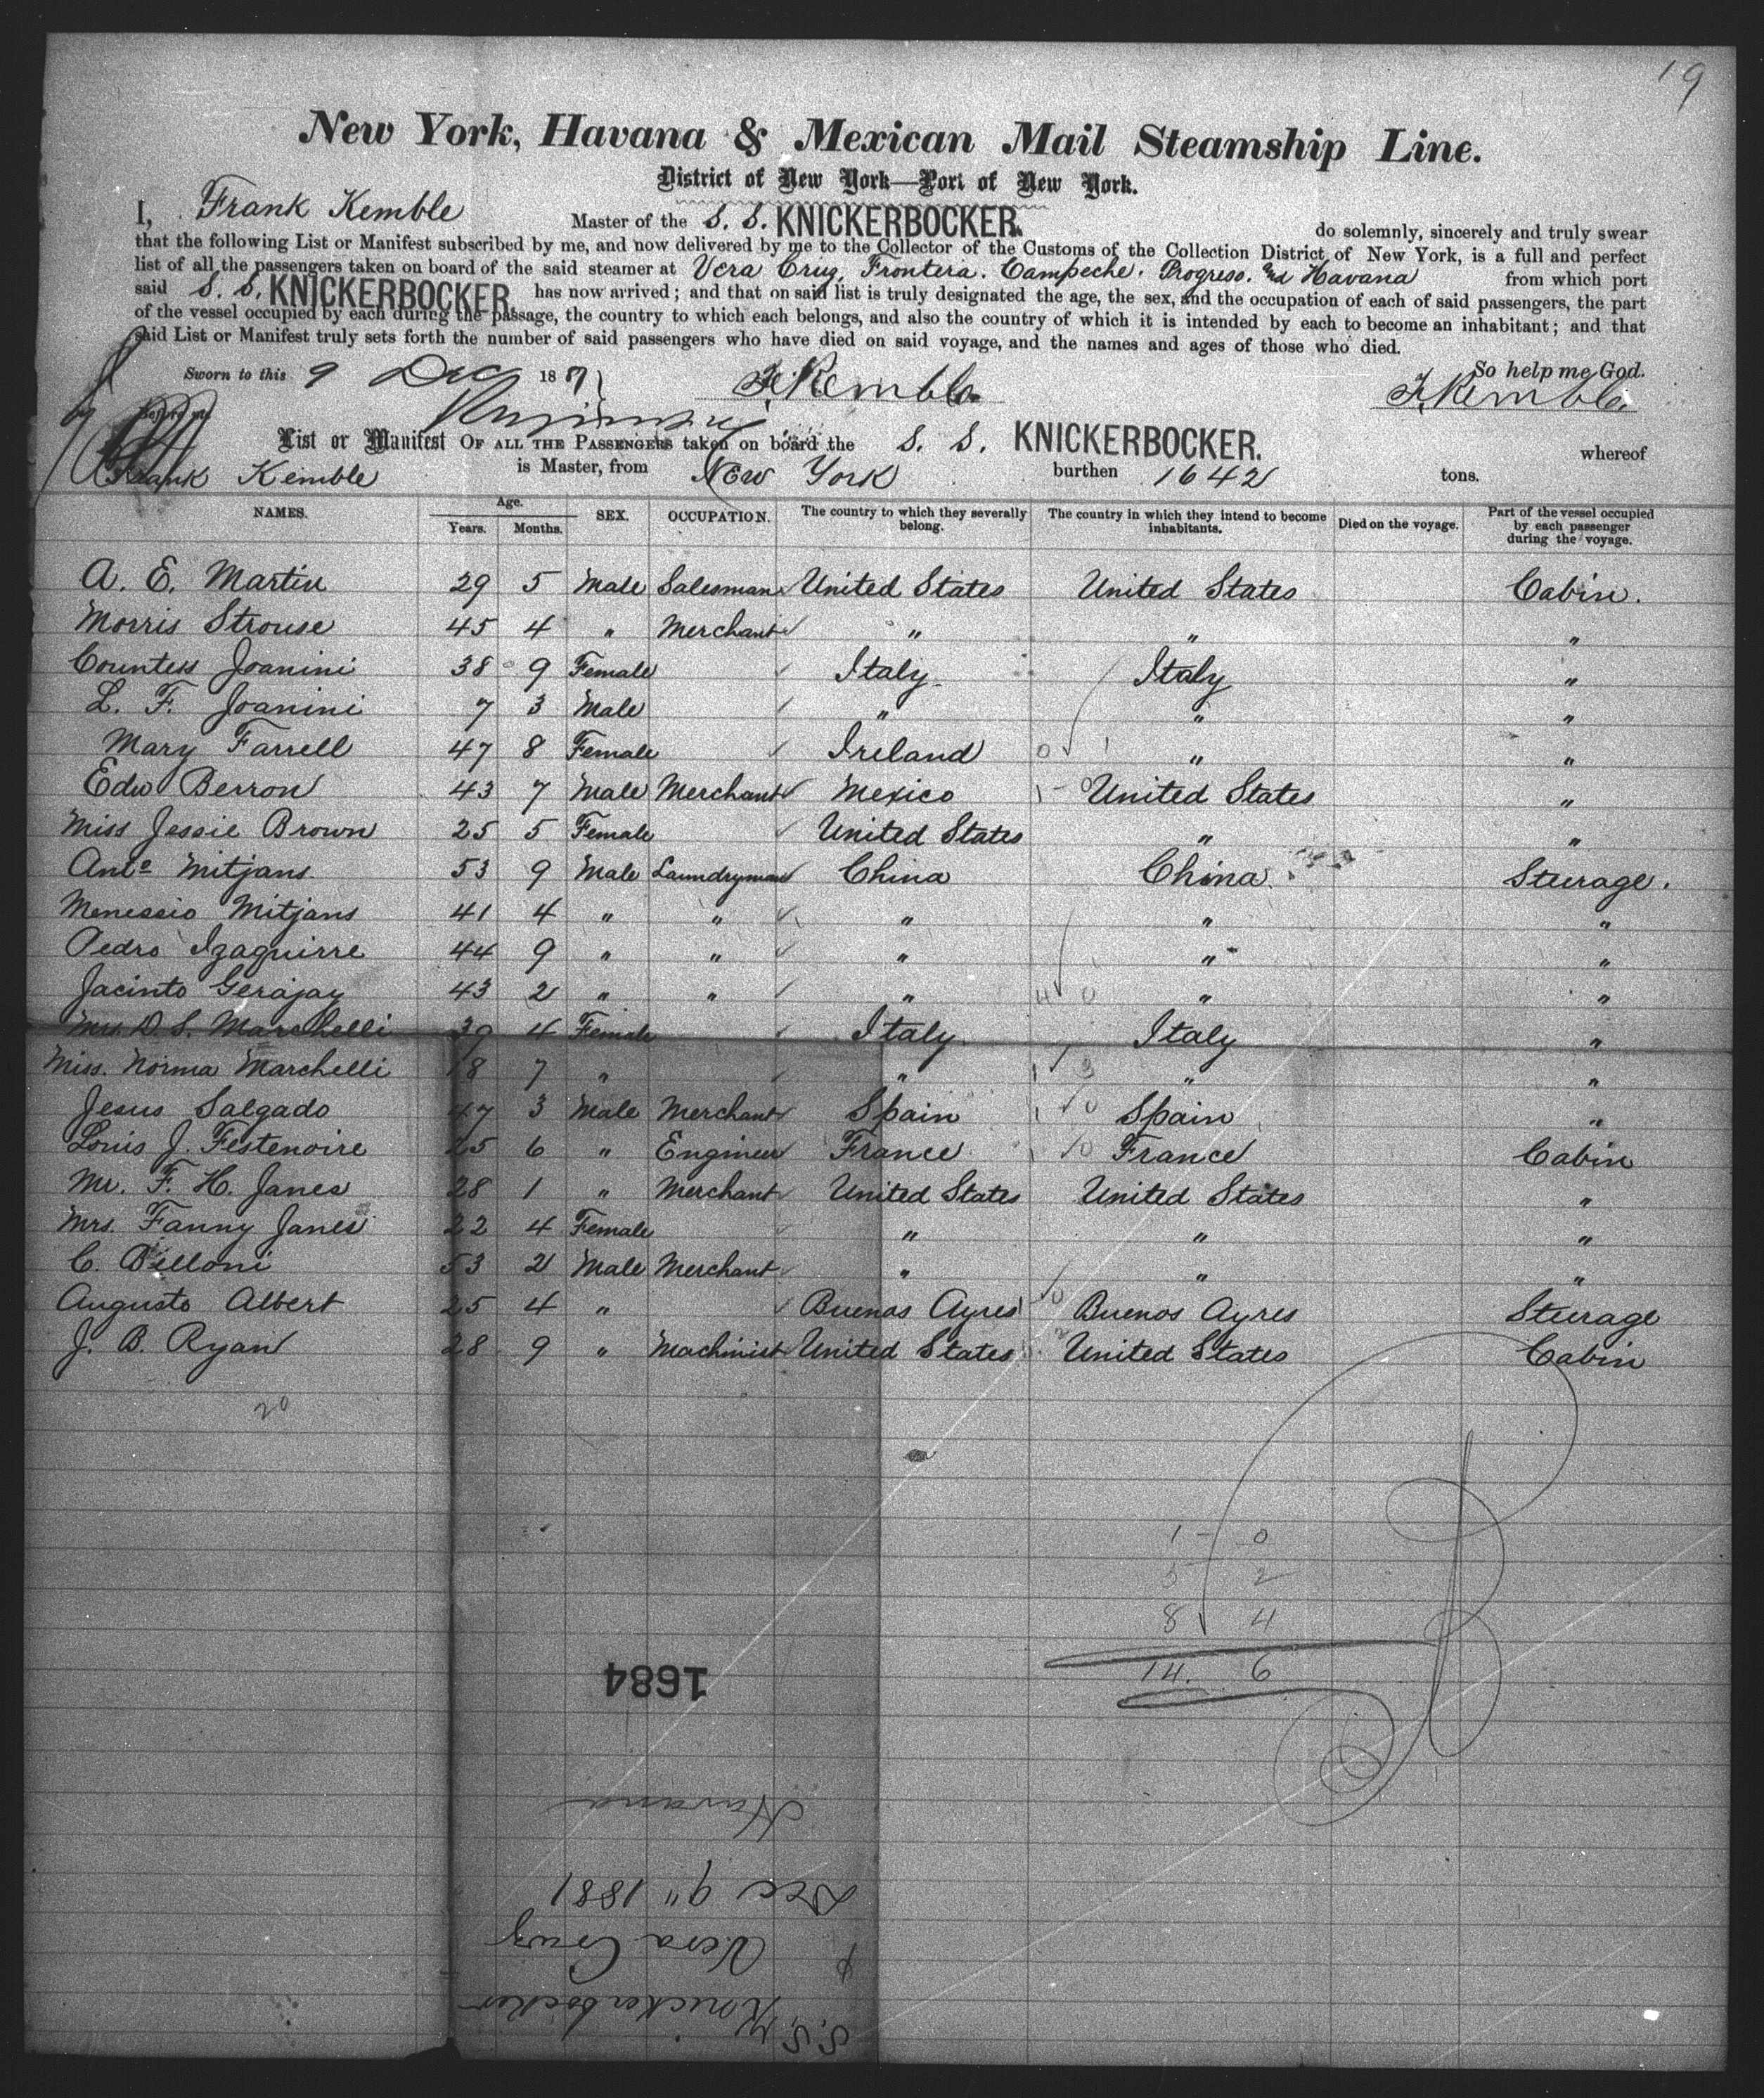 19
New York, Havana & Mexican Mail Steamship Line.
District of New York—Port of New York.
I, Frank Kemble Master of the S. S. KNICKERBOCKER. do solemnly, sincerely and truly swear
that the following List or Manifest subscribed by me, and now delivered by me to the Collector of the Customs of the Collection District of New York, is a full and perfect
list of all the passengers taken on board of the said steamer at Vera Cruz, Frontera. Campeche. Progreso. and Havana from which port
said S. S. KNICKERBOCKER. has now arrived; and that on said list is truly designated the age, the sex, and the occupation of each of said passengers, the part
of the vessel occupied by each during the passage, the country to which each belongs, and also the country of which it is intended by each to become an inhabitant; and that
said List or Manifest truly sets forth the number of said passengers who have died on said voyage, and the names and ages of those who died.
So help me God.
Sworn to this 9 Dec 1881 F. Kemble F. Kemble
Before me
List or Manifest OF ALL THE PASSENGERS taken on board the S. S. KNICKERBOCKER. whereof
Frank Kemble is Master, from New York burthen 1642 tons.
NAMES. Age. Years. Months. SEX. OCCUPATION. The country to which they severally belong. The country in which they intend to become inhabitants. Died on the voyage. Part of the vessel occupied by each passenger during the voyage.
A. E. Martin 29 5 Male Salesman United States United States Cabin.
Morris Strouse 45 4 " Merchant " " "
Countess Joanini 38 9 Female Italy Italy "
L. F. Joanini 7 3 Male " " "
Mary Farrell 47 8 Female Ireland " "
Edw Berron 43 7 Male Merchant Mexico United States "
Miss Jessie Brown 25 5 Female United States " "
Anto Mitjans 53 9 Male Laundryman China China Steerage.
Menessio Mitjans 41 4 " " " " "
Pedro Izaguirre 44 9 " " " " "
Jacinto Gerajay 43 2 " " " " "
Mrs. D. S. Marchelli 39 4 Female Italy Italy "
Miss. Norma Marchelli 18 7 " " " "
Jesus Salgado 47 3 Male Merchant Spain Spain "
Louis J. Festenoire 25 6 " Engineer France France Cabin
Mr. F. H. Janes 28 1 " Merchant United States United States "
Mrs. Fanny Janes 22 4 Female " " "
C. Belloni 53 2 Male Merchant " " "
Augusto Albert 25 4 " Buenos Ayres Buenos Ayres Steerage
J. B. Ryan 28 9 " Machinist United States United States Cabin
20
1 - 0
5 2
8 4
14. 6
1684
Havana
Dec 9" 1881
Vera Cruz
S.S. Knickerbocker